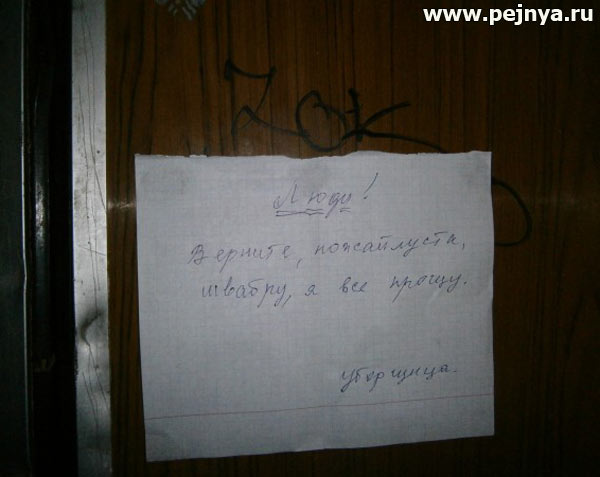 www.pejnya.ru
Zok
Люди!
Верните, пожайлуста,
швабру, я все прощу.
уборщица.